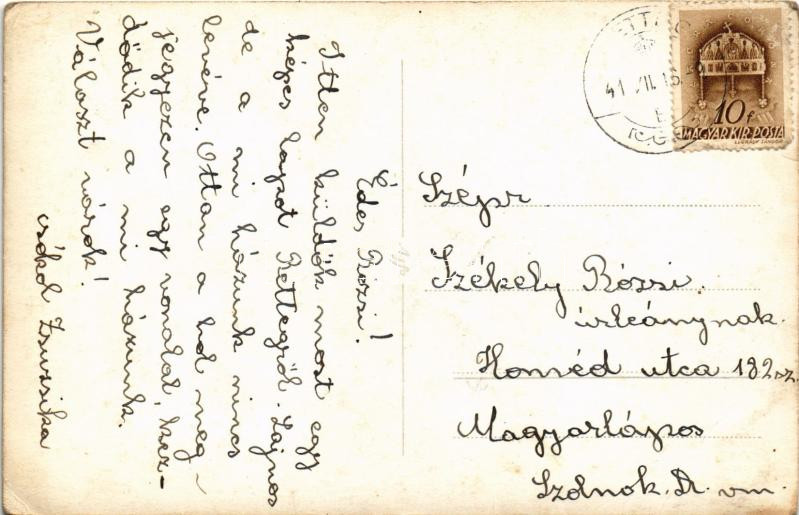 Édes Rózsi!
Itten küldök most egy
képes lapot Rettegröl. Sajnos
de a mi házunk nincs
levéve. Ottan a hol meg-
jegyezem egy vonalal, kez-
dödik a mi házunk.
Választ várok!
csókol Zsuzsika
41 VII. 15.
10f
MAGYAR KIR. POSTA
Szépr
Székely Rózsi
úrleánynak.
Honvéd utca 182sz.
Magyarlápos
Szolnok. D. vm.